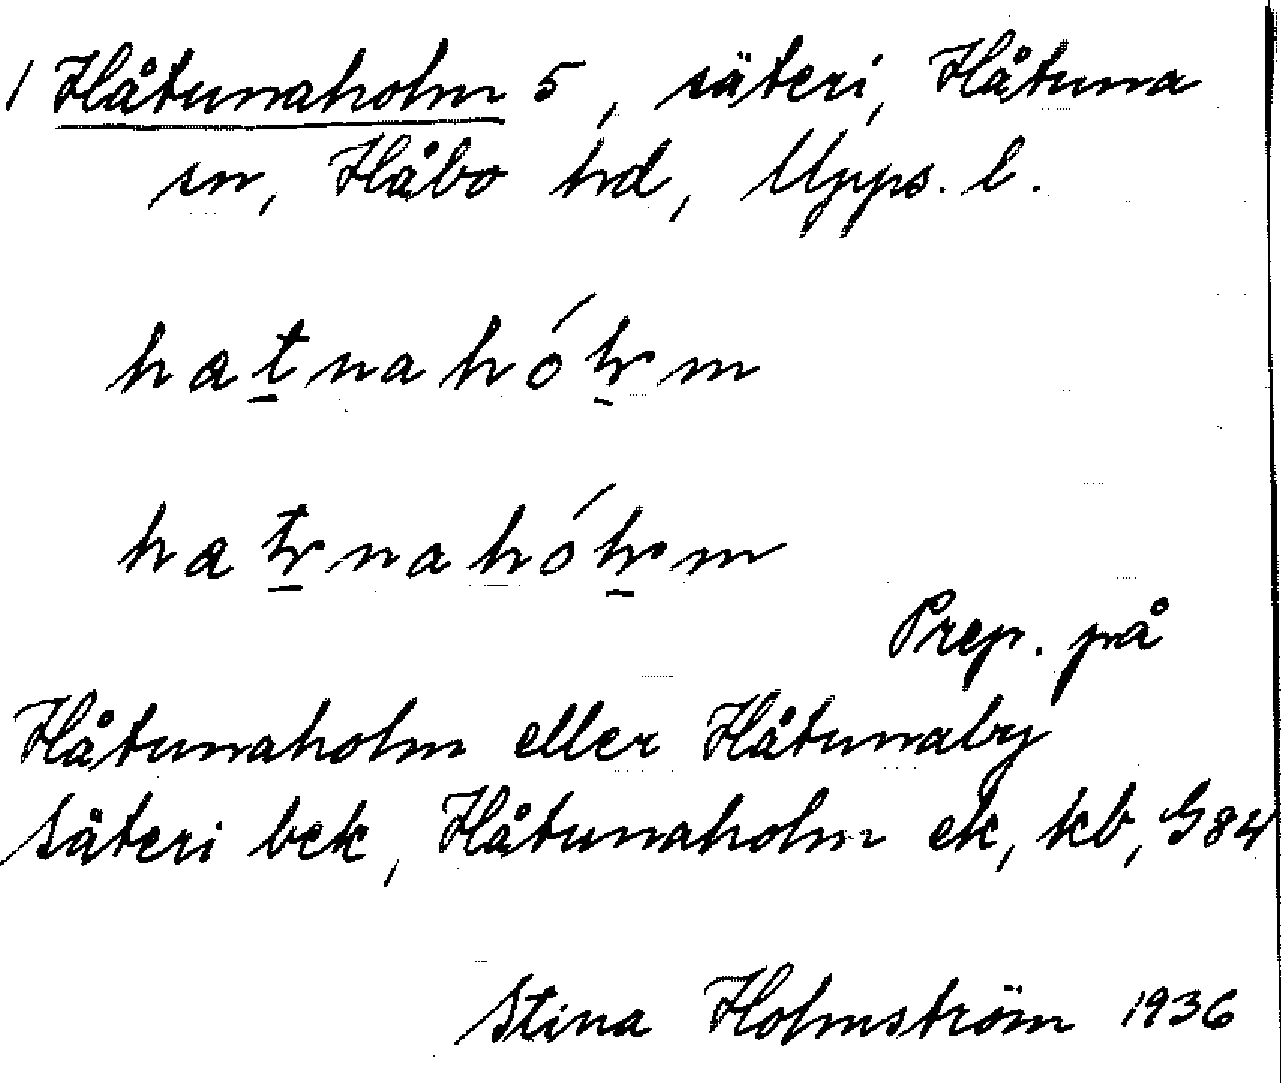 1 Håtunaholm 5, säteri, Håtuna
sn, Håbo hd, Upps. l.
Prep. på
Håtunaholm eller Håtunaby
Säteri bek, Håtunaholm ek, kb, G 84
Stina Holmström 1936